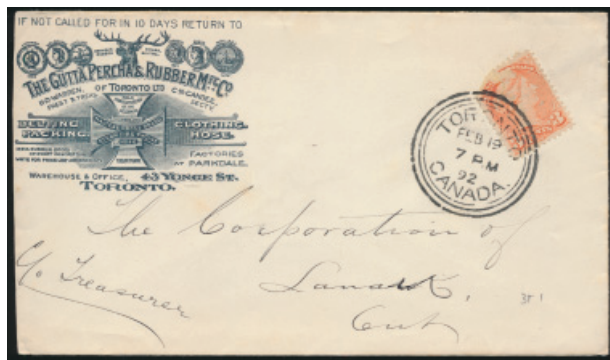 IF NOT CALLED FOR IN 10 DAYS RETURN TO
THE GUTTA PERCHA & RUBBER MFG CO.
OF TORONTO LTD
BELTING CLOTHING
PACKING. HOSE.
FACTORIES
AT PARKDALE.
WAREHOUSE & OFFICE, 43 YONGE ST.
TORONTO.
TORONTO
FEB 19
7 PM
92
CANADA.
The Corporation of
c/o Treasurer
Lanark,
Ont